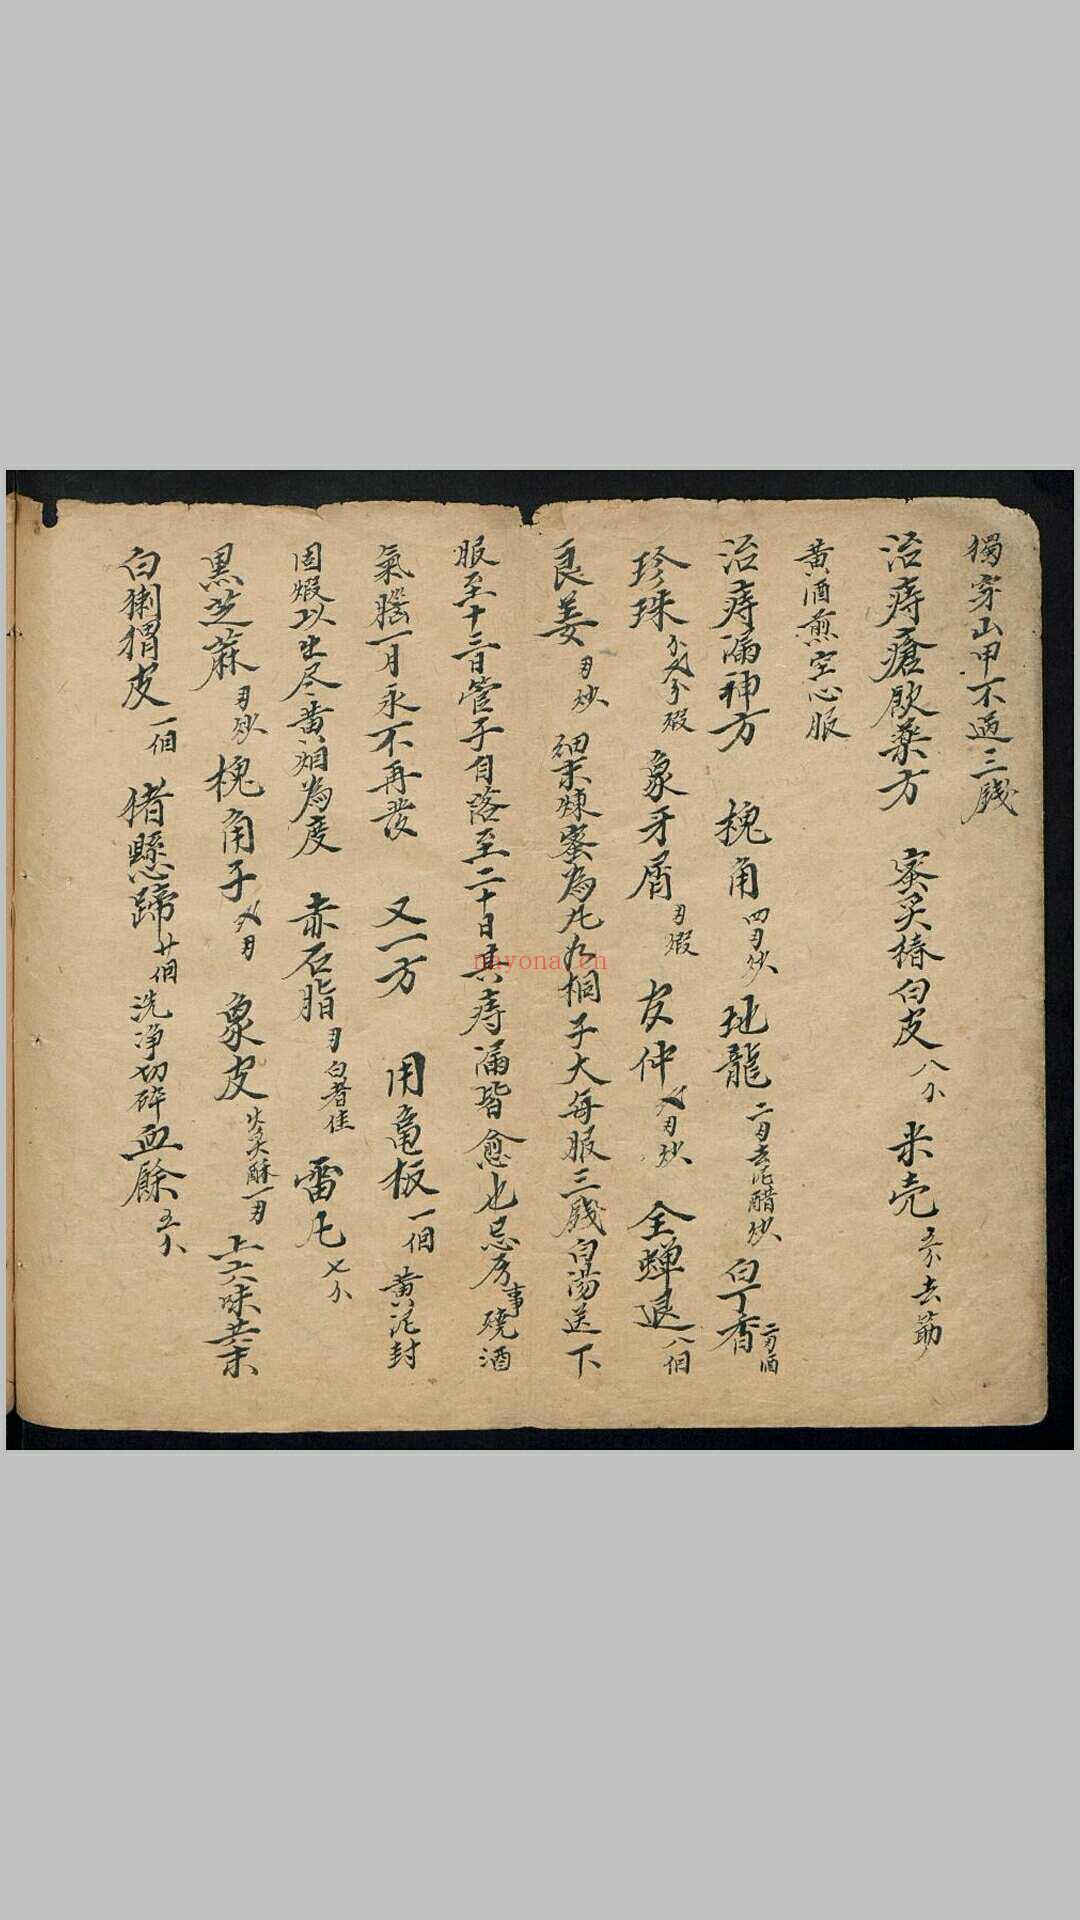 獨穿山甲不過三錢
治痔瘡飲藥方 蜜炙椿白皮八小 米壳 去筋
黄酒煎空心服
治痔漏神方 槐角四刃炒 地龍二刃去泥醋炒 白丁香二刃酒
珍珠 煅 象牙屑刃煅 皮仲 刃炒 全蝉退八個
良姜刃炒 細末煉蜜為凡丸桐子大每服三錢白湯送下
服至十三日管子自落至二十日其痔漏皆愈也忌房事燒酒
氣惱一月永不再發 又一方 用龟板一個 黄泥封
固煅以出尽黄烟為度 赤石脂刃白者佳 雷凡七小
黒芝蔴刃炒 槐角子 刃 象皮火炙酥一刃 上六味共末
白猬皮一個 猪懸蹄廿個洗净切碎 血餘五小
nayona.cn